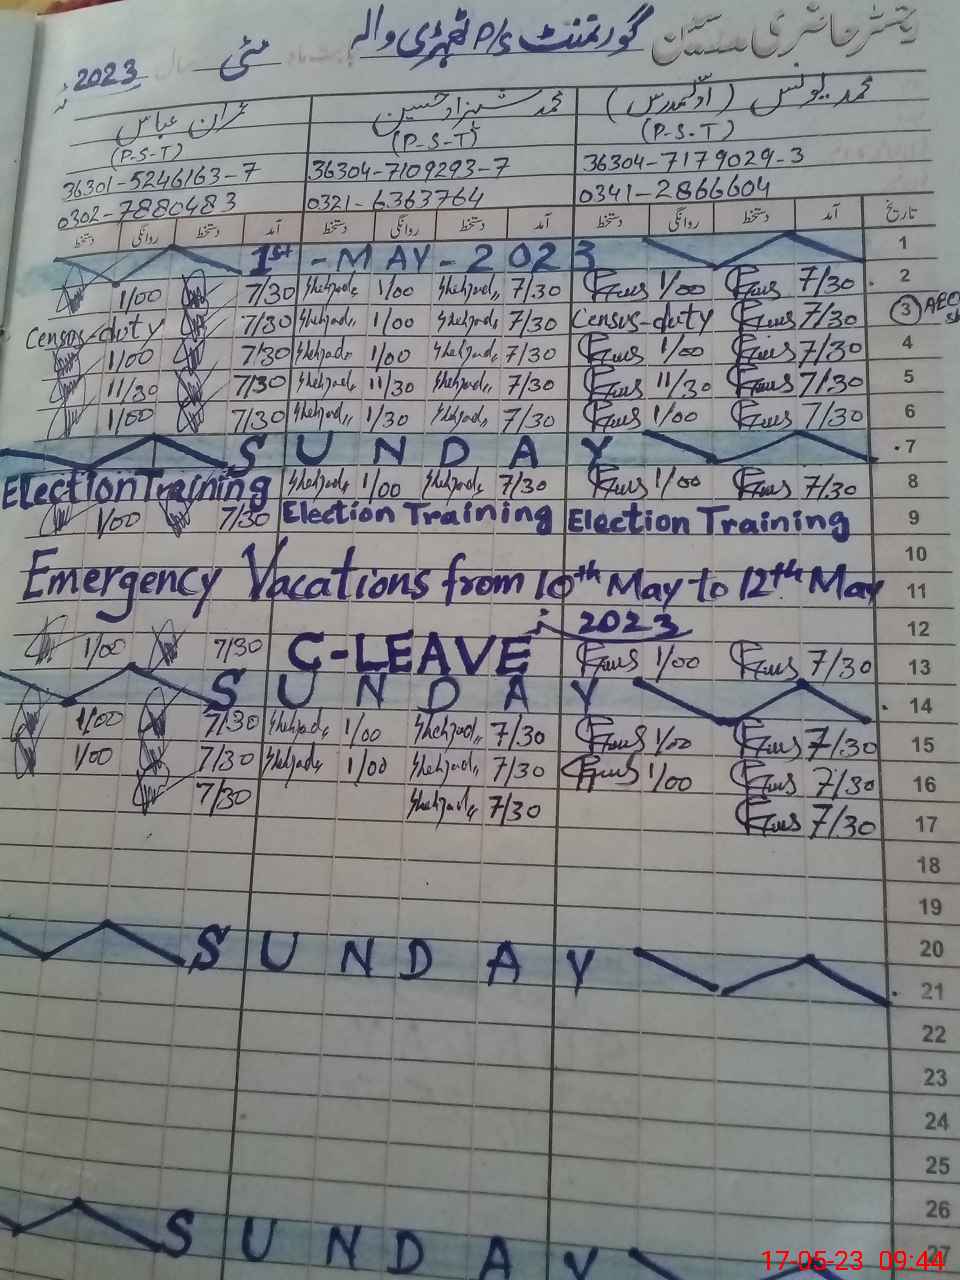 رجسٹر حاضری مدرسین گورنمنٹ P/S ٹھہڑی والہ مئی 2023
محمد یونس (اوّل مدرس) محمد شہزاد حسین عمران عباس
(P-S-T) (P-S-T) (P-S-T)
36304-7179029-3 36304-7109293-7 36301-5246163-7
0341-2866604 0321-6363764 0302-7880483
تاریخ آمد دستخط روانگی دستخط آمد دستخط روانگی دستخط آمد دستخط روانگی دستخط
1st - MAY - 2023 1
1/00 7/30 Shehzad 1/00 Shehzad 7/30 1/00 7/30 2
Census-duty 7/30 Shehzad 1/00 Shehzad 7/30 Census-duty 7/30 3 AEO
1/00 7/30 Shehzad 1/00 Shehzad 7/30 1/00 7/30 4
11/30 7/30 Shehzad 11/30 Shehzad 7/30 11/30 7/30 5
1/00 7/30 Shehzad 1/30 Shehzad 7/30 1/00 7/30 6
SUNDAY 7
Election Training Shehzad 1/00 Shehzad 7/30 1/00 7/30 8
1/00 7/30 Election Training Election Training 9
10
Emergency Vacations from 10th May to 12th May 11
2023 12
1/00 7/30 C-LEAVE 1/00 7/30 13
SUNDAY 14
1/00 7/30 Shehzad 1/00 Shehzad 7/30 1/00 7/30 15
1/00 7/30 Shehzad 1/00 Shehzad 7/30 1/00 7/30 16
7/30 Shehzad 7/30 7/30 17
18
19
20
SUNDAY 21
22
23
24
25
26
SUNDAY 27
17-05-23 09:44